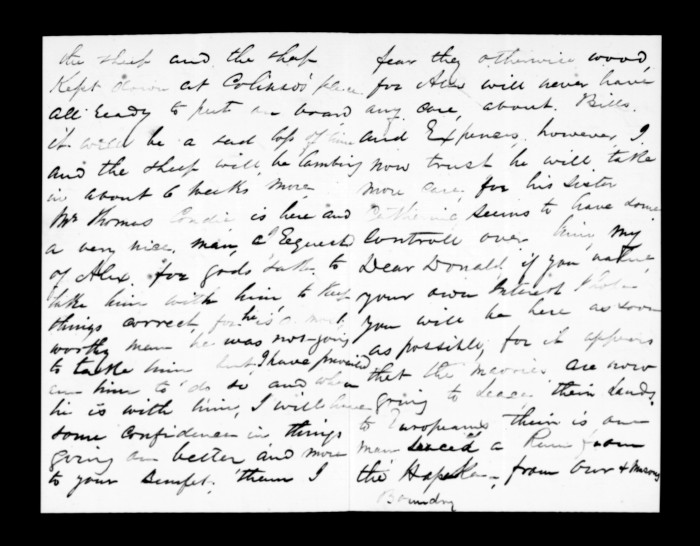 the sheep and the shep
Kept down at Colinso's place
all Ready to put on board
it will be a sad loss of time
and the sheep will be lambing
in about 6 weeks more
Mr Thomas is here and
a very nice man, I Requested
of Alex for gods sake, to
take him with him to keep
things correct, for he is a most
worthy man he was not going
to take him but, I have prevailed
on him to do so and when
he is with him, I will have
some confidence in things
going on better and more
to your Benefit, than I
fear they otherwise would,
for Alex will never have
any care, about Bills.
and Expences, however, I
now trust he will take
more care, for his sister
Catherine seems to have some
Controll over him, my
Dear Donald if you value
your own Interest I hope
you will be here as soon
as possibly, for it appears
that the maories are now
going to Leace their Lands
to Europeans their is one
man Leaced a Run from
the from our & Maoris
Boundry